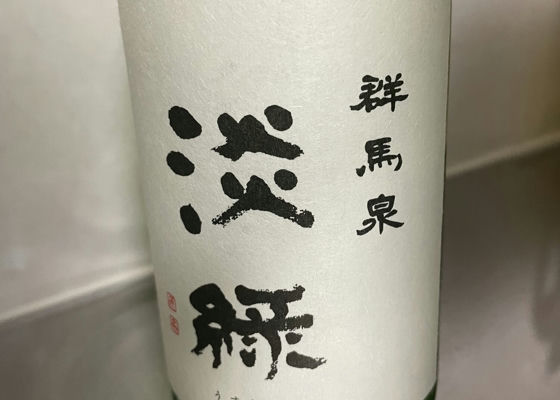 群馬泉
淡緑
う